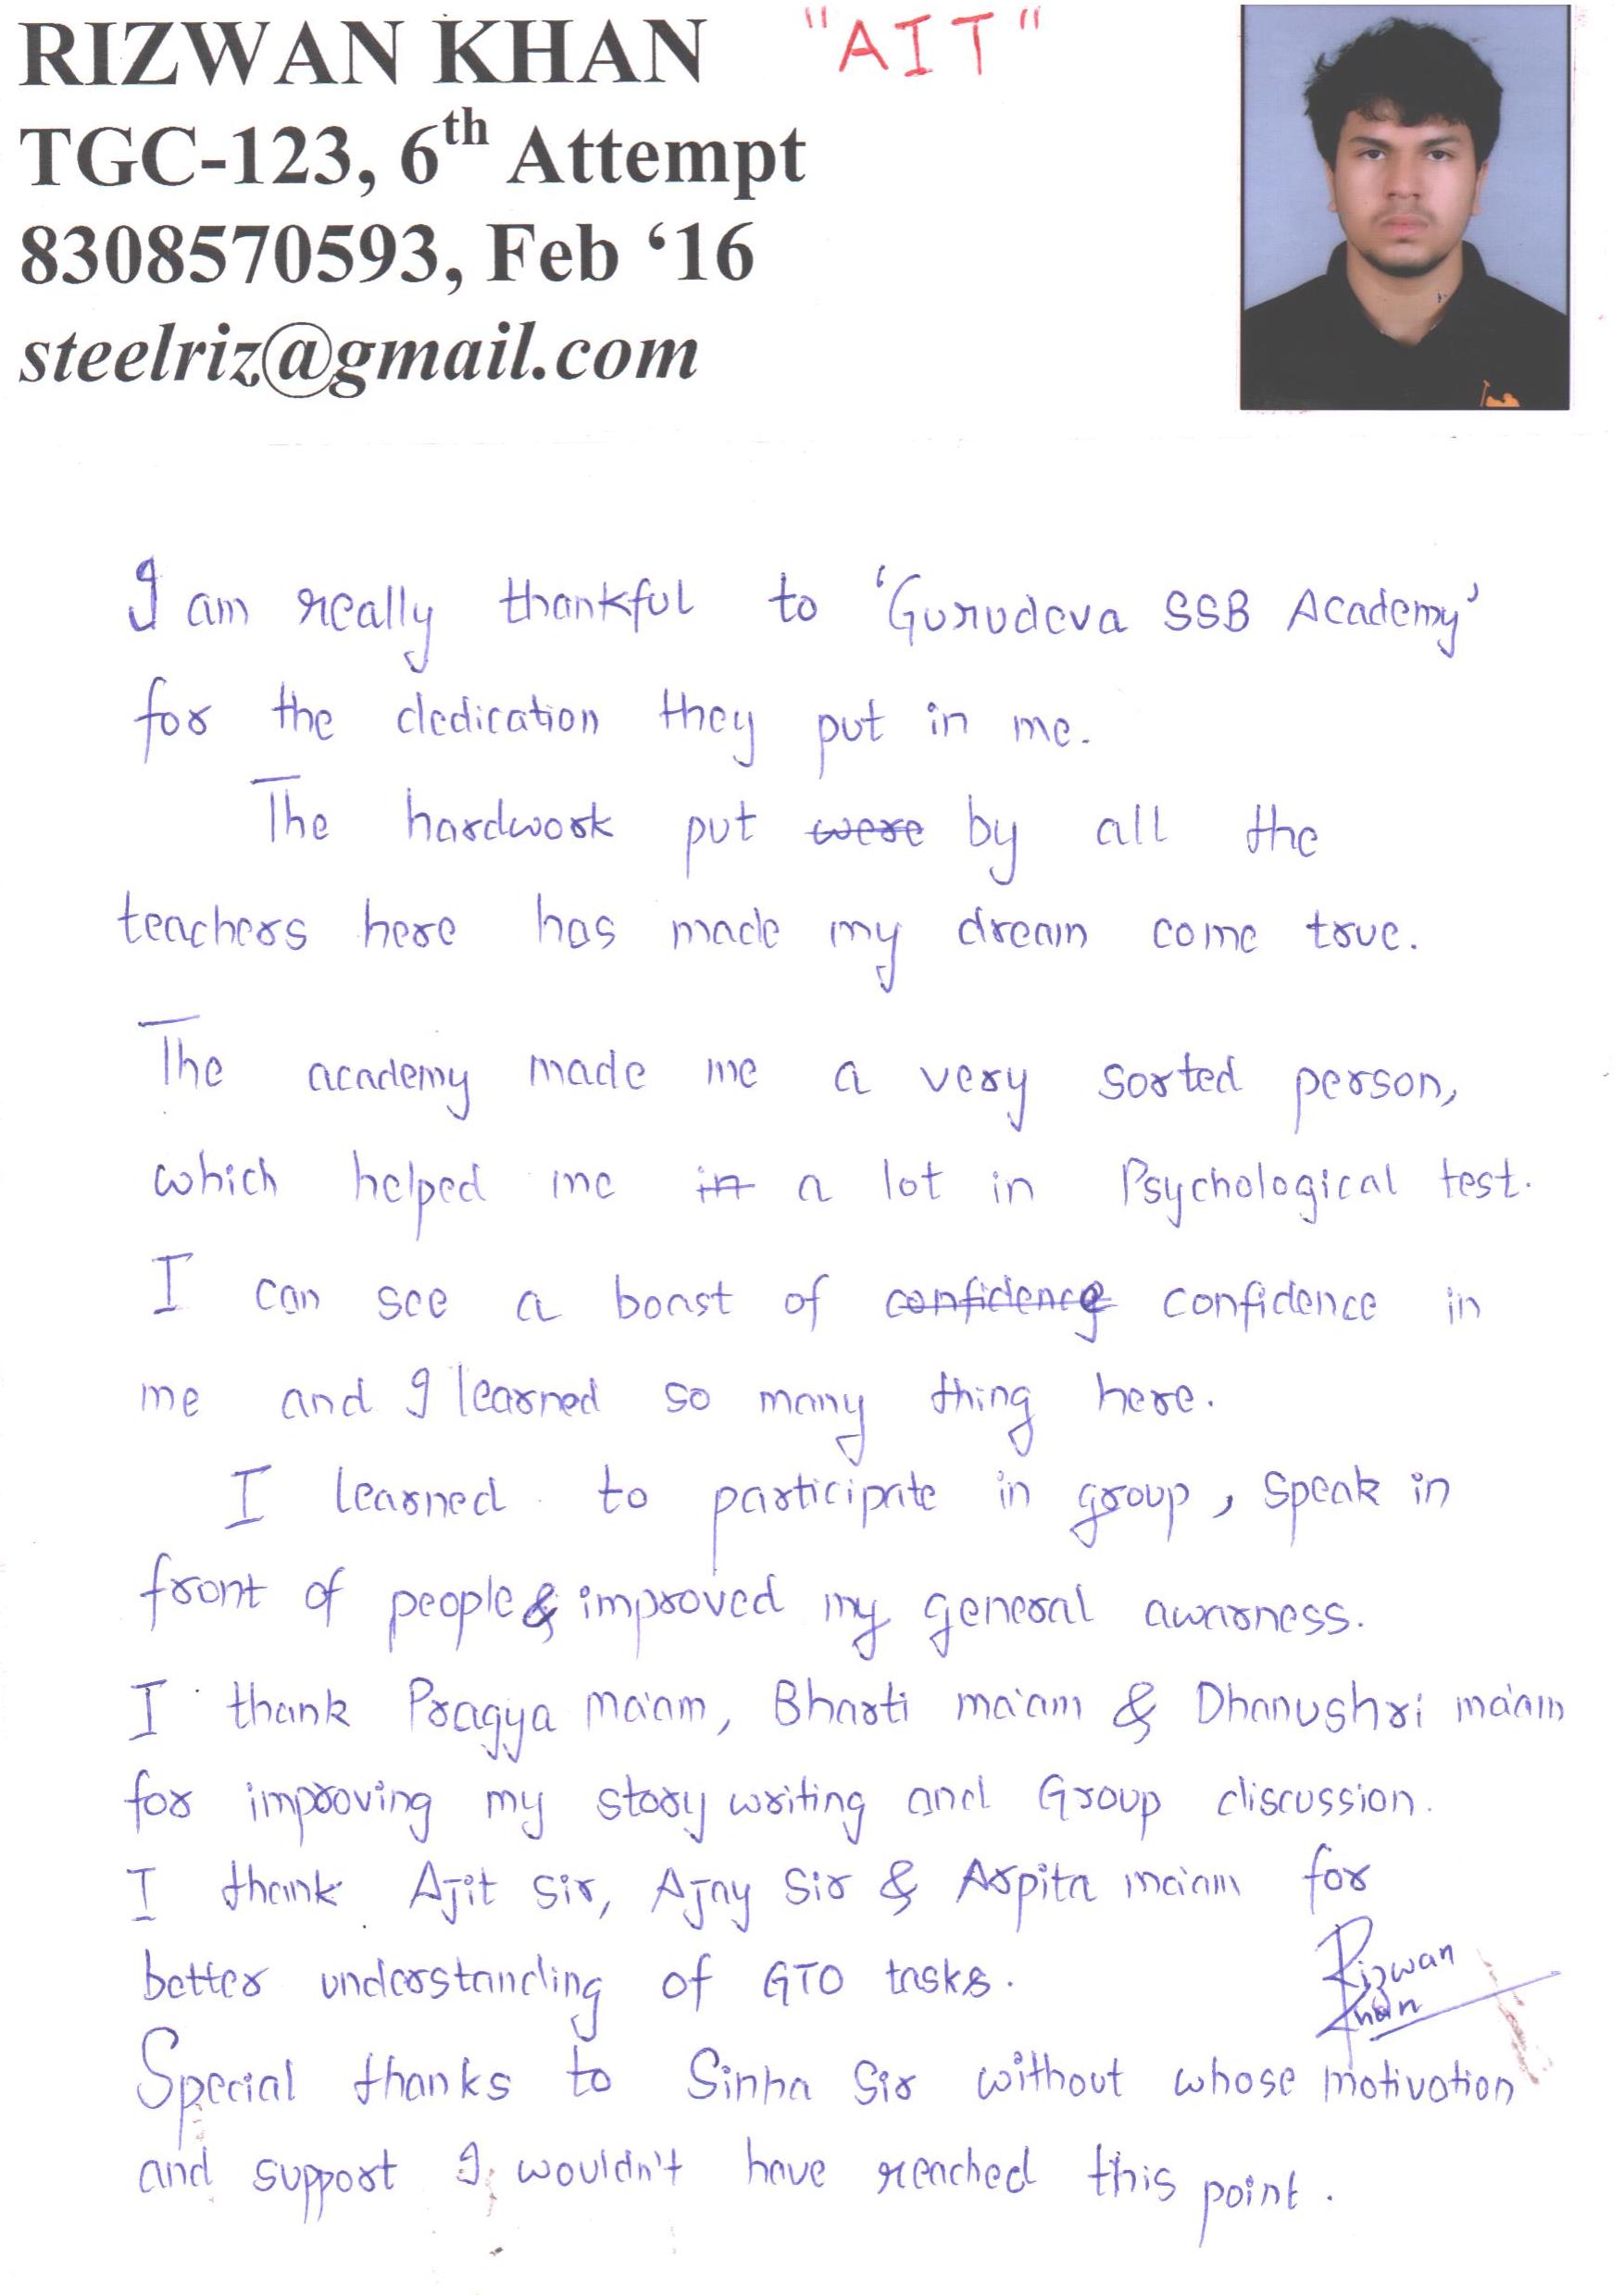 RIZWAN KHAN "AIT"
TGC-123, 6th Attempt
8308570593, Feb ‘16
steelriz@gmail.com
I am really thankful to 'Gurudeva SSB Academy'
for the dedication they put in me.
The hardwork put were by all the
teachers here has made my dream come true.
The academy made me a very sorted person,
which helped me in a lot in Psychological test.
I can see a boast of confidence confidence in
me and I learned so many thing here.
I learned to participate in group, speak in
front of people & improved my general awarness.
I thank Pragya ma'am, Bharti ma'am & Dhanushri ma'am
for improving my story writing and Group discussion.
I thank Ajit sir, Ajay Sir & Arpita ma'am for
better understanding of GTO tasks.
Rizwan
Khan
Special thanks to Sinha Sir without whose motivation
and support I wouldn't have reached this point.